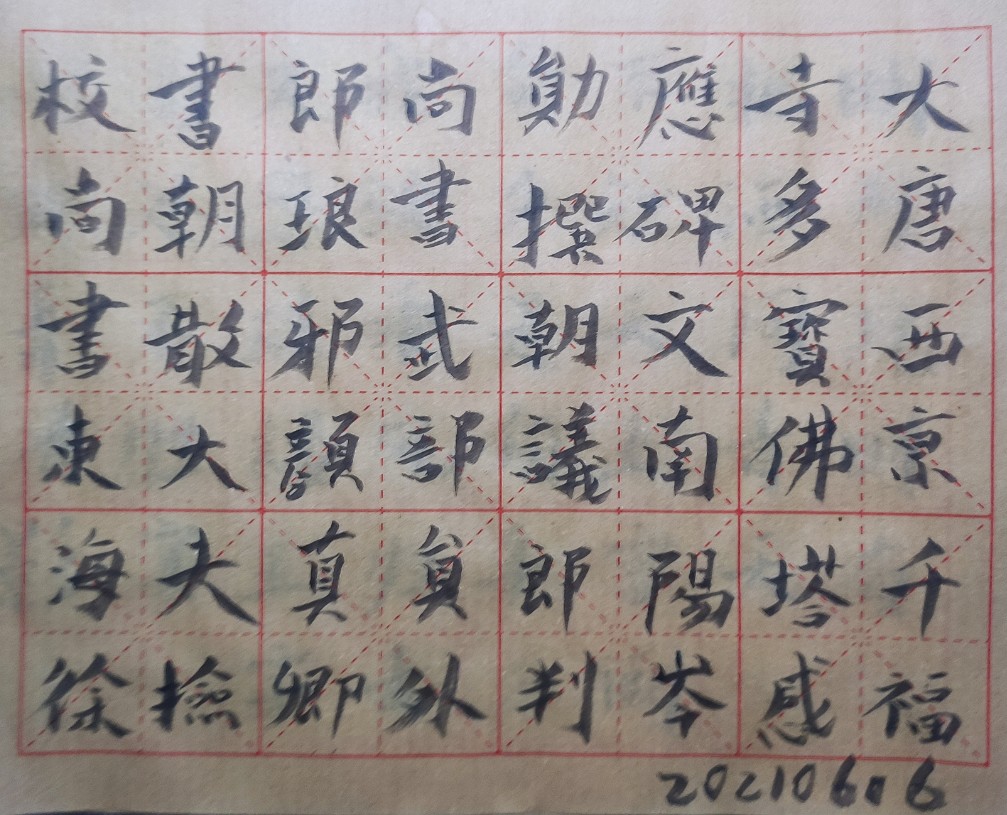 大唐西京千福
寺多寶佛塔感
應碑文南陽岑
勛撰朝議郎判
尚書武部員外
郎琅邪顏真卿
書朝散大夫撿
校尚書東海徐
20210616